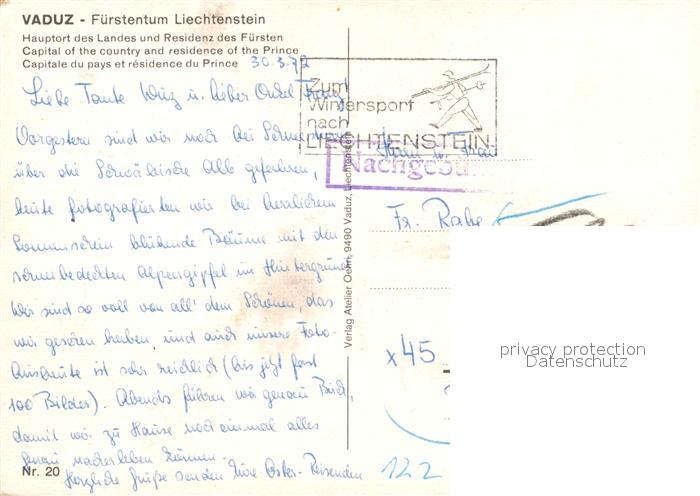 VADUZ - Fürstentum Liechtenstein
Hauptort des Landes und Residenz des Fürsten
Capital of the country and residence of the Prince
Capitale du pays et résidence du Prince
30.3.72
Liebe Tante u. lieber Onkel Franz!
Vorgestern sind wir noch bei
über die Schwäbische Alb gefahren,
heute fotografierten wir bei herrlichem
Sonnenschein blühende Bäume mit den
schneebedeckten Alpengipfel im Hintergrund.
Wir sind so voll von all' dem Schönen, das
wir gesehen haben, und auch unsere Foto-
Ausbeute ist sehr reichlich (bis jetzt fast
100 Bilder). Abends führen wir genau Buch,
damit wir zu Hause noch einmal alles
genau nacherleben können.
Herzliche Grüße senden Eure Oster-Reisenden
Nr. 20
Verlag Atelier Oehri, 9490 Vaduz, Liechtenstein
Zum
Wintersport
nach
LIECHTENSTEIN
Nachgebühr
Herrn u. Frau
Fr. Rabe
x45
122
privacy protection
Datenschutz